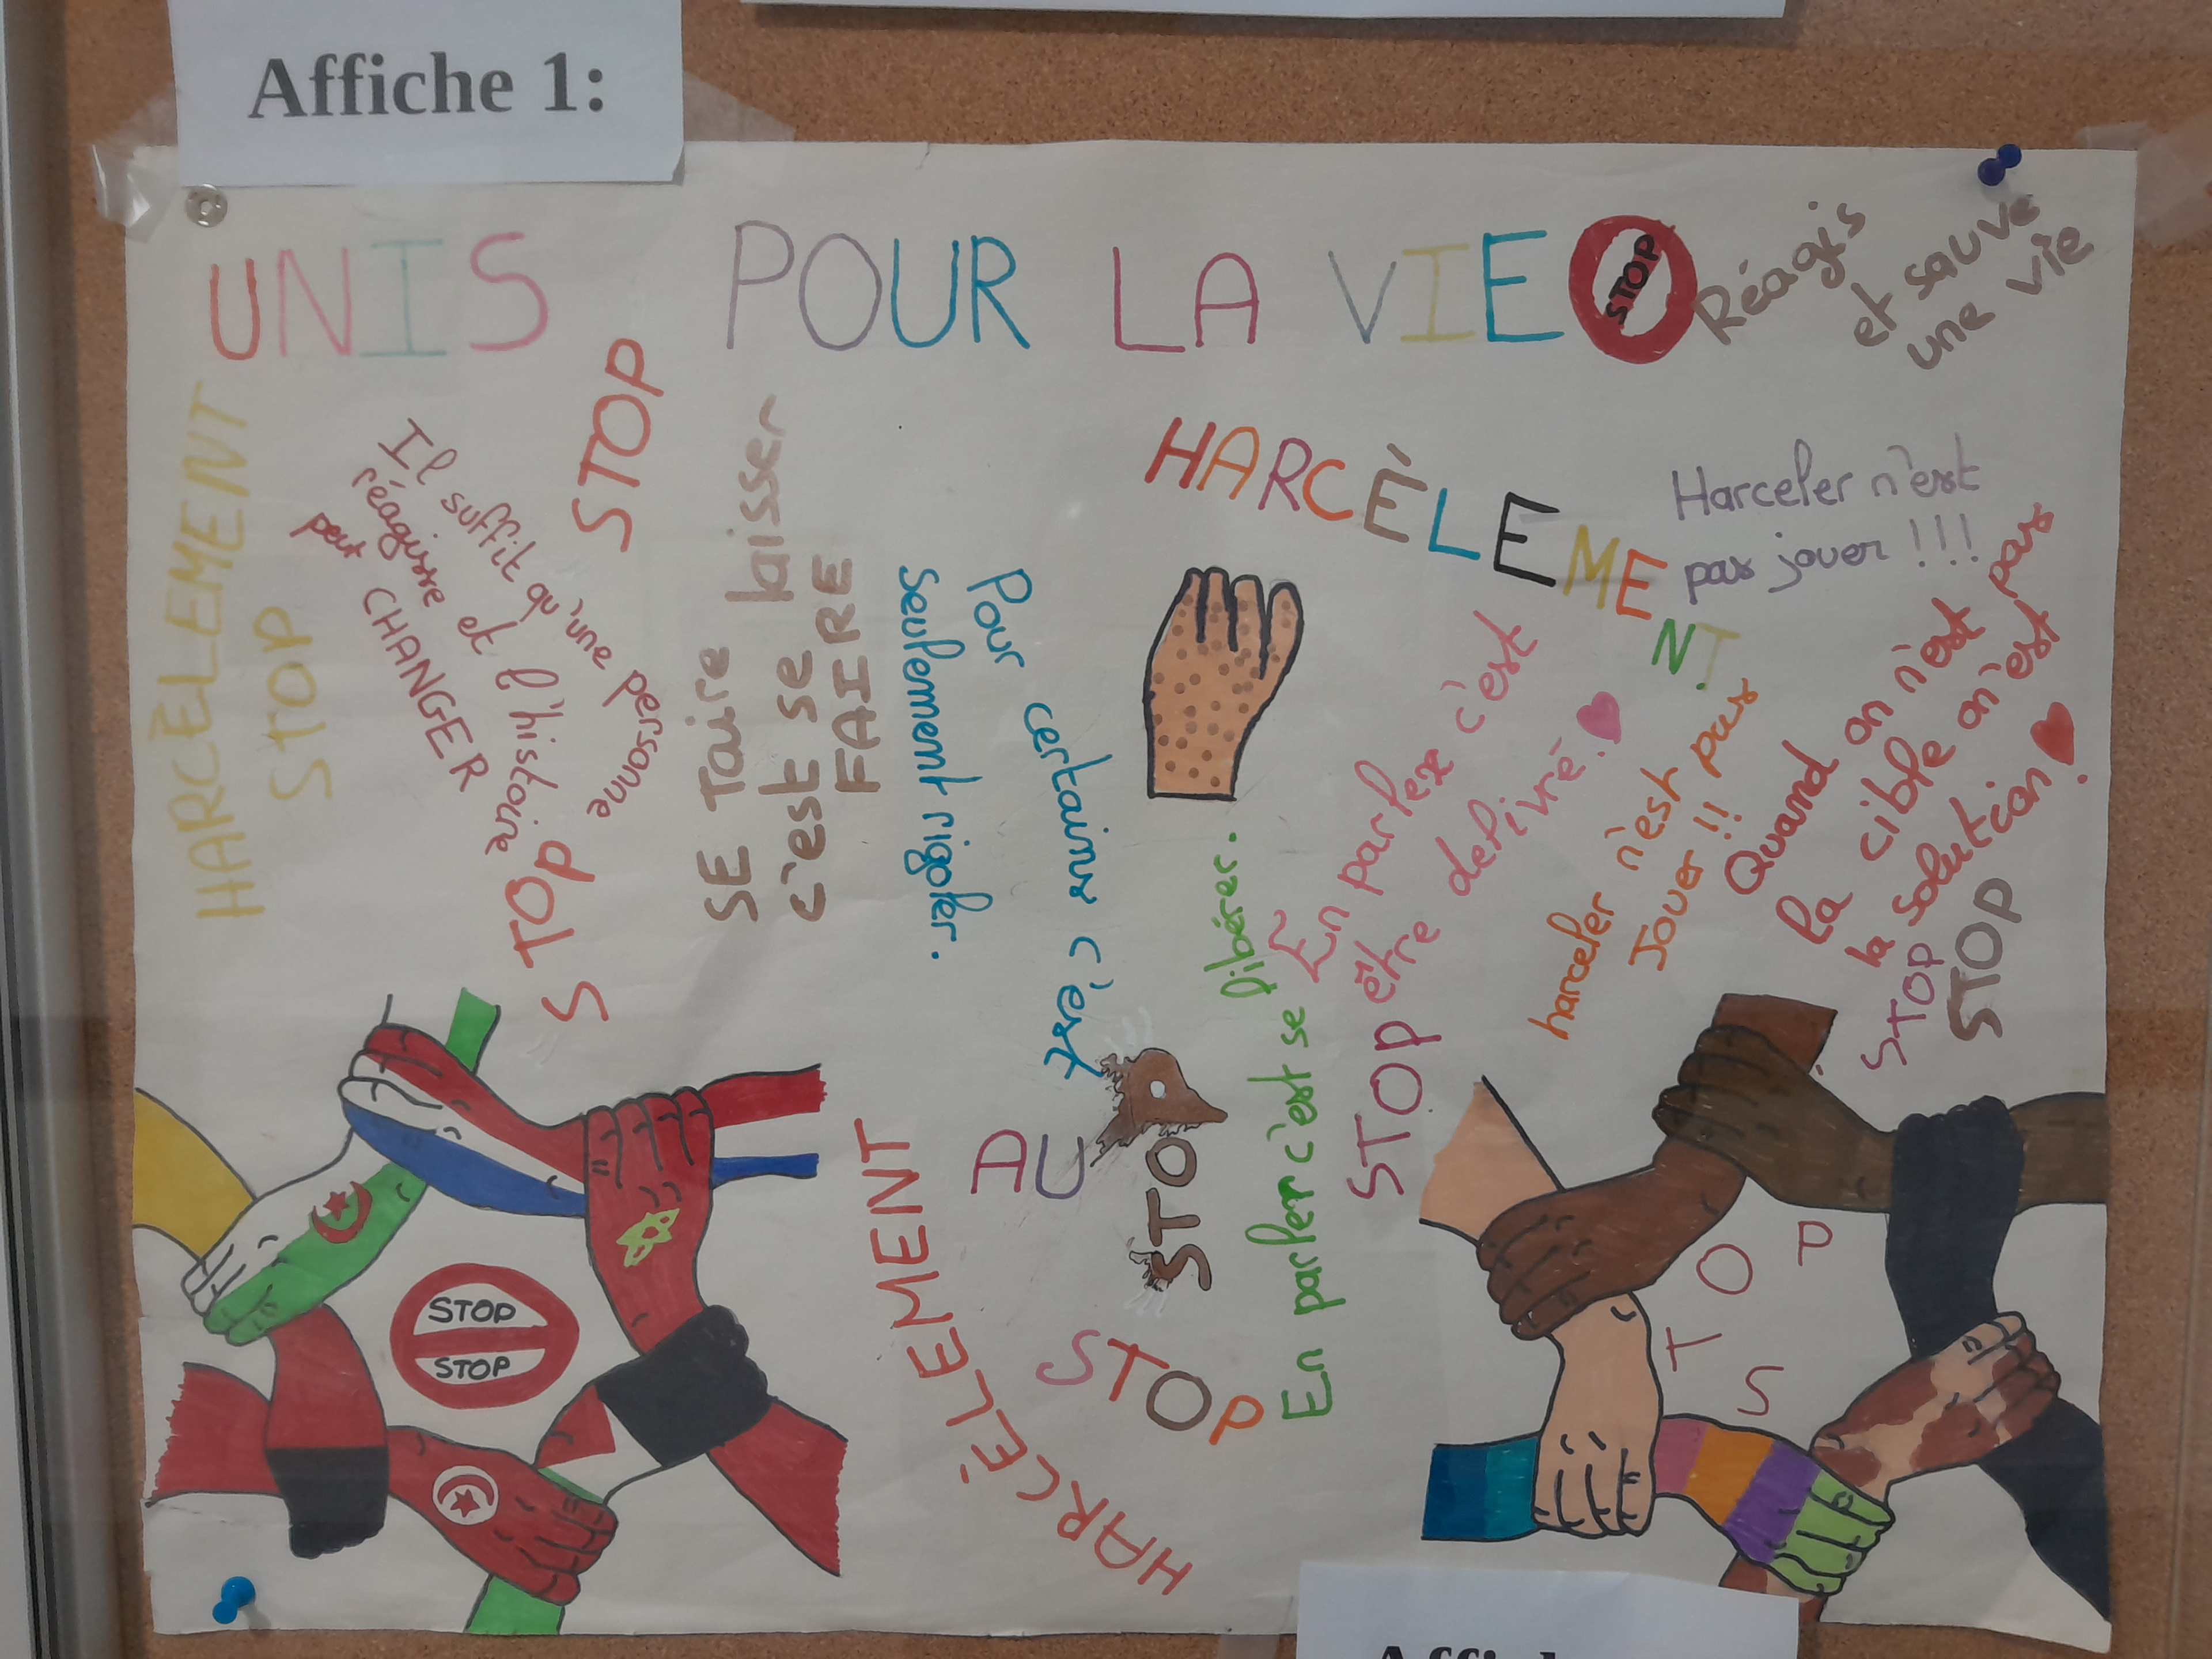 Affiche 1:
UNIS POUR LA VIE
STOP
Réagis
et sauve
une vie
HARCÈLEMENT
STOP
Il suffit qu'une personne
réagisse et l'histoire
peut CHANGER
STOP
STOP
SE Taire
c'est se laisser
FAIRE
Pour certains c'est
seulement rigoler.
HARCÈLEMENT
Harceler n'est
pas jouer !!!
En parler c'est
être delivré!
harceler n'est pas
Jouer !!
Quand on n'est pas
la cible on n'est pas
la solution!
STOP
STOP
STOP
En parler c'est se libérer.
AU
STOP
STOP
HARCÈLEMENT
STOP
STOP
STOP